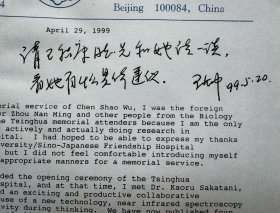 Beijing 100084, China
April 29, 1999
请
和她谈一谈,
看她有什么具体建议。
99.5.20.
orial service of Chen Shao Wu, I was the foreign
r Zhou Nan Ming and other people from the Biology
e Tsinghua memorial attendees because I am the only
actively and actually doing research in
pital. I had hoped to be able to express my thanks
versity/Sino-Japanese Friendship Hospital
but I did not feel comfortable introducing myself
appropriate manners for a memorial service.
ded the opening ceremony of the Tsinghua
spital, and at that time, I met Dr. Kaoru Sakatani,
d an exciting and productive collaborative
use of a new technology, near infrared spectroscopy
vity during thinking. We have now published four